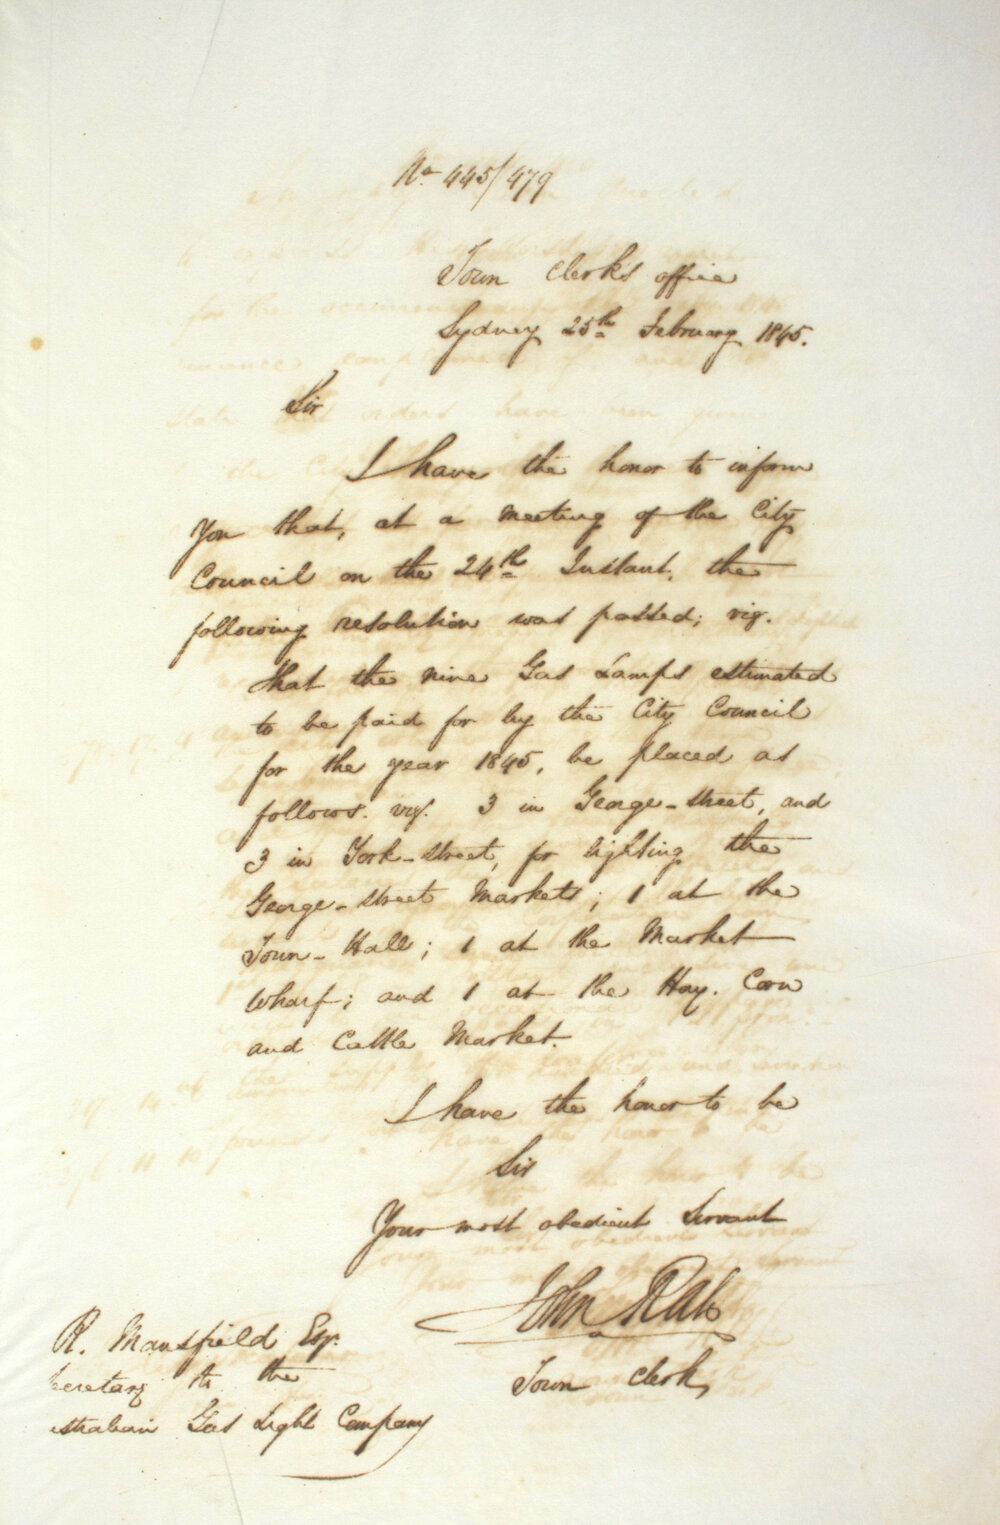 No 445/479
Town Clerks office
Sydney 25th February 1845.
Sir
I have the honor to inform
You that, at a meeting of the City
Council on the 24th Instant, the
following resolution was passed; viz.
that the nine Gas Lamps estimated
to be paid for by the City Council
for the year 1845, be placed as
follows. viz. 3 in George-street, and
3 in York-street, for lighting the
George-street Markets; 1 at the
Town-Hall; 1 at the Market
Wharf; and 1 at the Hay. Corn
and Cattle Market.
I have the honor to be
Sir
Your most obedient Servant
John Rae
Town Clerk
R. Mansfield Esqr.
Secretary to the
stralian Gas Light Company